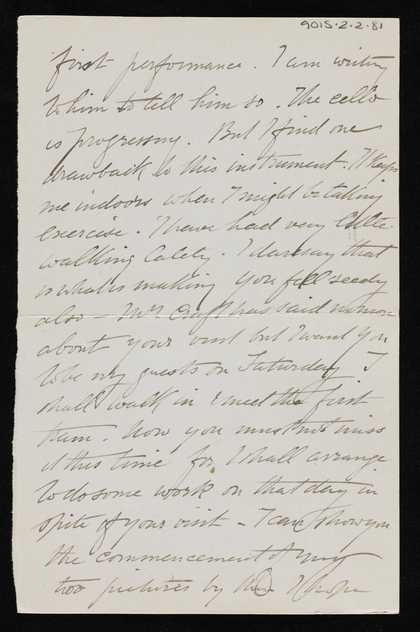 9015-2-2-81
first performance. I am writing
to him to tell him so. The cello
is progressing. But I find one
drawback to this instrument. It keeps
me indoors when I might be taking
exercise. I have had very little
walking lately. I daresay that
is what is making you feel seedy
also – Mrs has said
about your visit but I want you
to be my guests on Saturday I
shall walk in & meet the first
train. Now you must not miss
it this time for I shall arrange
to do some work on that day in
spite of your visit – I can show you
the commencement of my
two pictures by then I hope